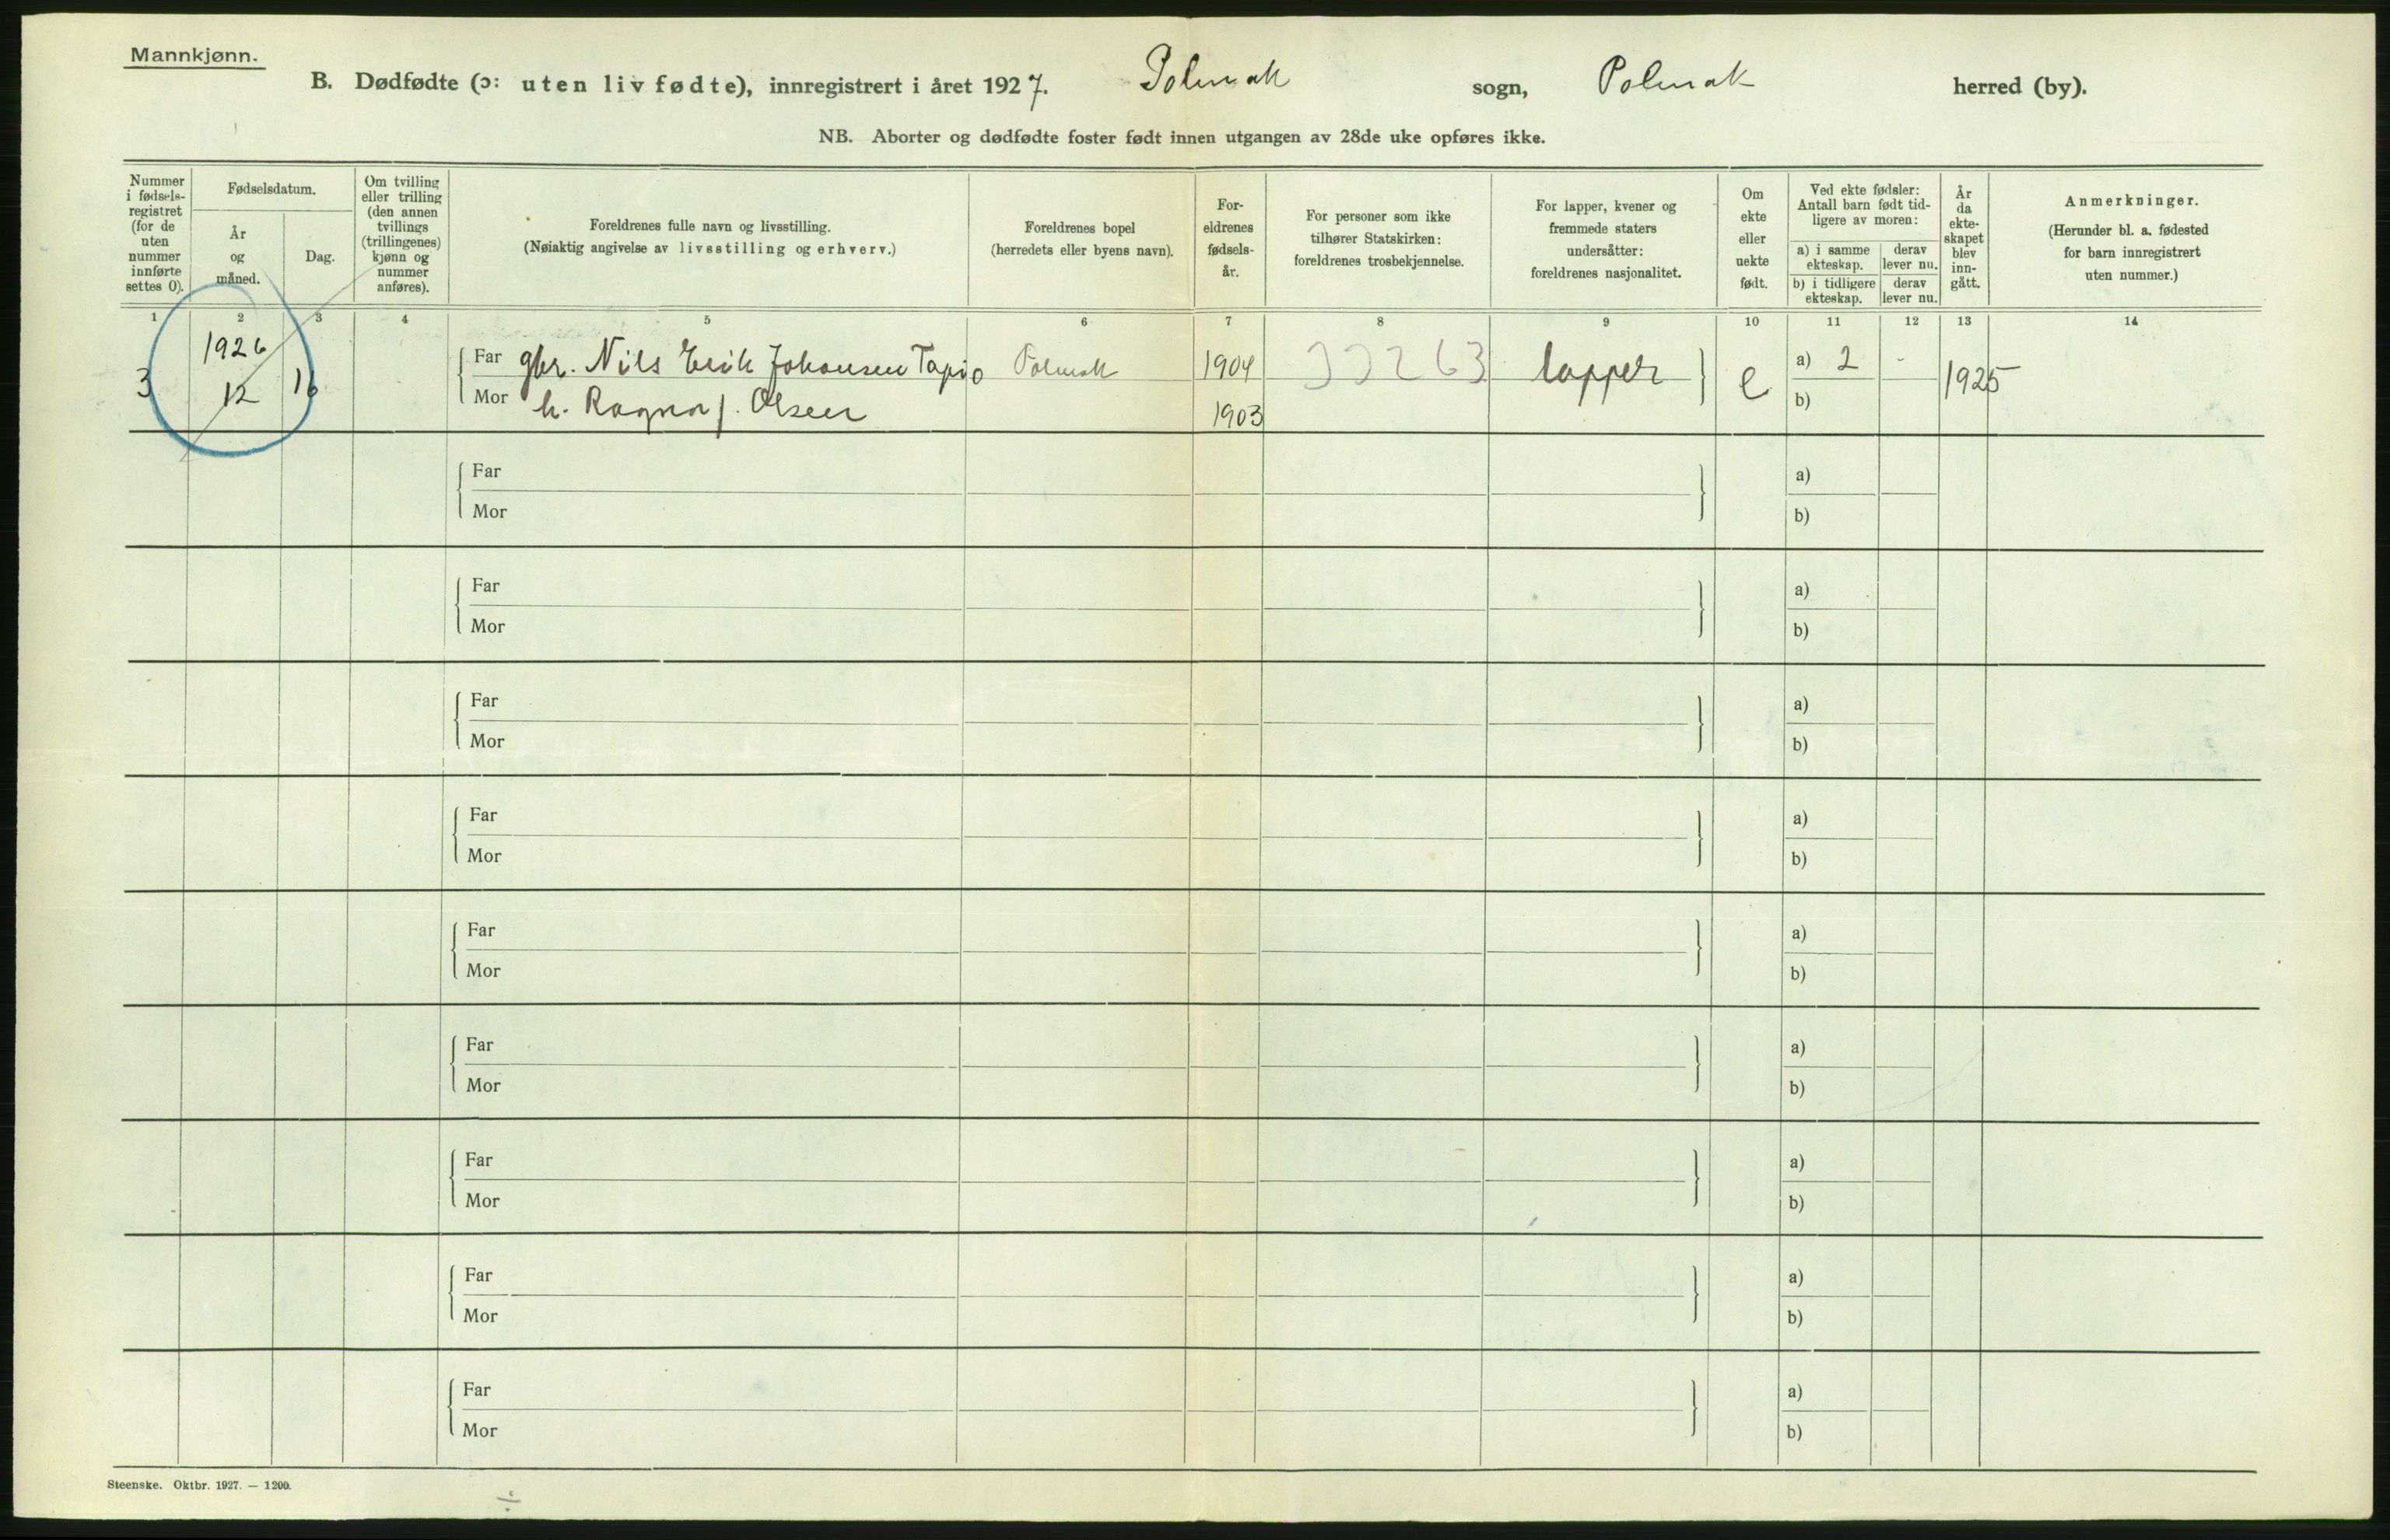 Mannkjønn.
B. Dødfødte (ɔ: uten liv fødte), innregistrert i året 1927. Polmak sogn, Polmak herred (by).
NB. Aborter og dødfødte foster født innen utgangen av 28de uke opføres ikke.
Nummer i fødsels-registret (for de uten nummer innførte settes 0).
Fødselsdatum.
År og måned.
Dag.
Om tvilling eller trilling (den annen tvillings (trillingenes) kjønn og nummer anføres).
Foreldrenes fulle navn og livsstilling.
(Nøiaktig angivelse av livsstilling og erhverv.)
Foreldrenes bopel
(herredets eller byens navn).
For-eldrenes fødsels-år.
For personer som ikke tilhører Statskirken: foreldrenes trosbekjennelse.
For lapper, kvener og fremmede staters undersåtter: foreldrenes nasjonalitet.
Om ekte eller uekte født.
Ved ekte fødsler: Antall barn født tid-ligere av moren:
a) i samme ekteskap.
derav lever nu.
b) i tidligere ekteskap.
derav lever nu.
År da ekte-skapet blev inn-gått.
Anmerkninger.
(Herunder bl. a. fødested for barn innregistrert uten nummer.)
1 2 3 4 5 6 7 8 9 10 11 12 13 14
3 1926 12 16 Far gbr. Nils Erik Johansen Tapio Polmak 1904 33263 lapper e a) 2 - 1925
Mor h. Ragna J. Olsen 1903 b)
Far a)
Mor b)
Far a)
Mor b)
Far a)
Mor b)
Far a)
Mor b)
Far a)
Mor b)
Far a)
Mor b)
Far a)
Mor b)
Far a)
Mor b)
Far a)
Mor b)
Steenske. Oktbr. 1927. — 1200.
÷